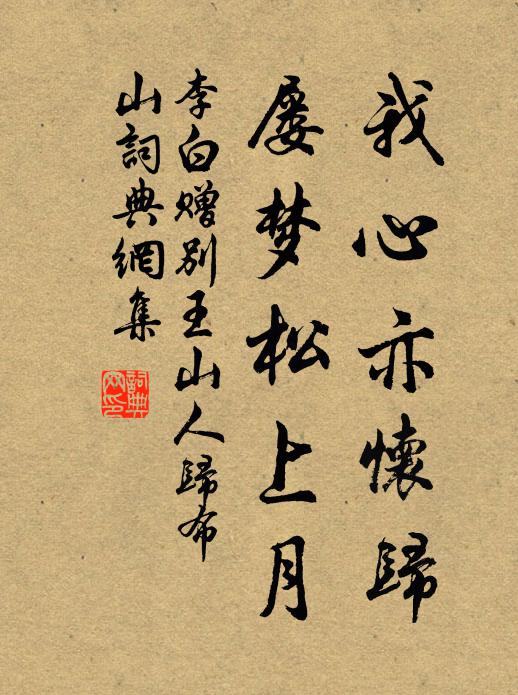 我心亦懷歸
屡梦松上月
李白赠别王山人歸布
山詞典網集
詞典
网印